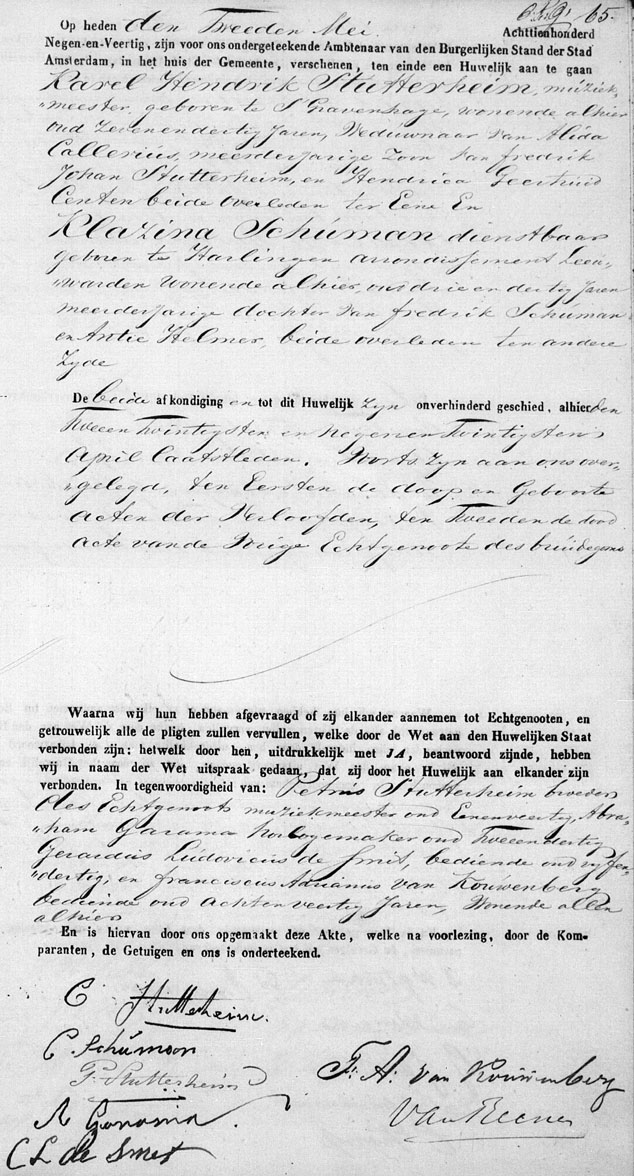 65.
Op heden den Tweeden Mei. Achttienhonderd
Negen-en-Veertig, zijn voor ons ondergeteekende Ambtenaar van den Burgerlijken Stand der Stad
Amsterdam, in het huis der Gemeente, verschenen, ten einde een Huwelijk aan te gaan
Karel Hendrik Stutterheim, muziek-
"meester, geboren te S Gravenhage, wonende alhier
oud Zevenendertig Jaren, Weduwnaar van Alida
Callerius, meerderjarige Zoon van fredrik
Johan Stutterheim, en Hendrica Geertruid
Centen beide overleden ter Eene En
Klazina Schúman dienstbaar
geboren te Harlingen arrondissement Leeu-
"warden wonende alhier, oud drie en dertig Jaren
meerderjarige dochter van fredrik Schuman
en Antie Helmer, beide overleden ten andere
Zyde
De beide afkondigingen tot dit Huwelijk Zyn onverhinderd geschied, alhier den
Tweeen Twintigsten en Negenen Twintigsten
April laatstleden. Voorts Zyn aan ons over-
"gelegd, ten Eersten de doop en Geboorte
acten der Verloofden, ten Tweeden de dood
acte van de Vorige Echtgenoote des bruidegoms
Waarna wij hun hebben afgevraagd of zij elkander aannemen tot Echtgenooten, en
getrouwelijk alle de pligten zullen vervullen, welke door de Wet aan den Huwelijken Staat
verbonden zijn: hetwelk door hen, uitdrukkelijk met JA, beantwoord zijnde, hebben
wij in naam der Wet uitspraak gedaan, dat zij door het Huwelijk aan elkander zijn
verbonden. In tegenwoordigheid van: Petrus Stutterheim broeder
des Echtgenoots muziekmeester oud Eenenveertig, Abra-
"ham Garama horlogemaker oud Tweeendertig
Gerardus Ludovicus de Smit, bediende oud vyfen-
"dertig, en franciscus Adrianus van Kouwenberg
bediende oud achtenveertig Jaren, Wonende allen
alhier
En is hiervan door ons opgemaakt deze Akte, welke na voorlezing, door de Kom-
paranten, de Getuigen en ons is onderteekend.
C Stutterheim.
C. Schúmoon
P. Stutterheim
F: A: van Kouwenberg
A Garama.
C L de Smet